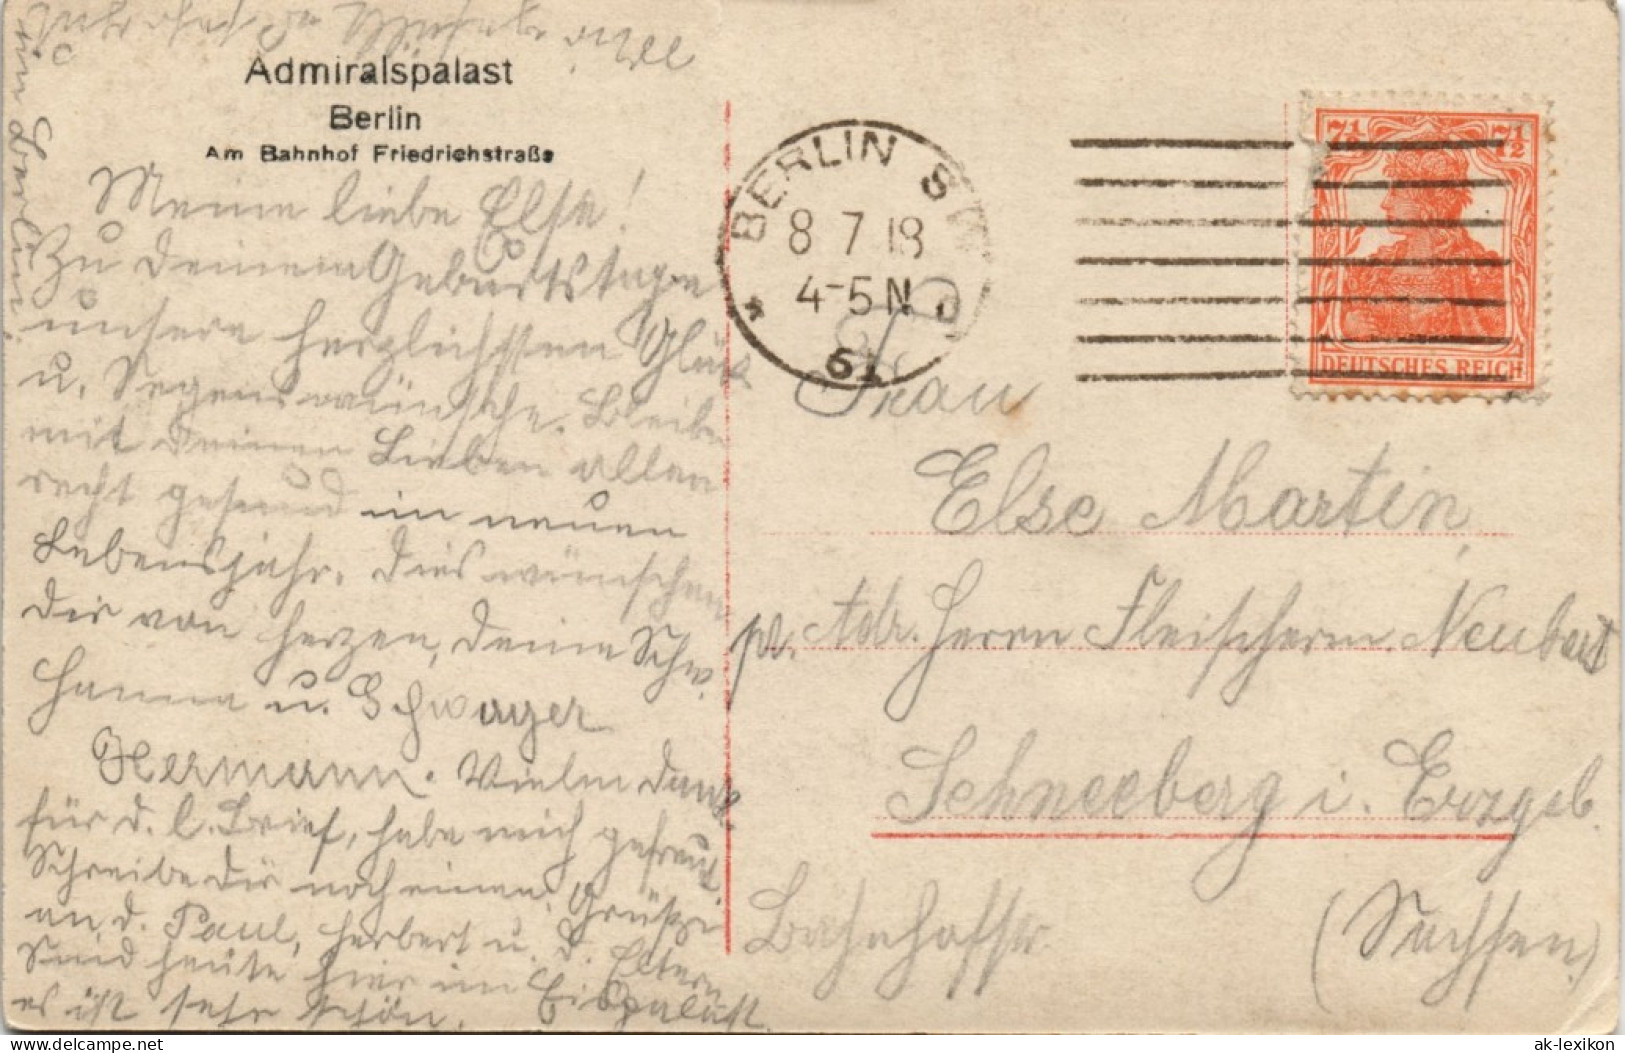 Admiralspalast
Berlin
Am Bahnhof Friedrichstraße
in Berlin.
Meine liebe Else!
Zu Deinem Geburtstage
unsere herzlichsten Glück
u. Segenswünsche. Bleibe
mit Deinen Lieben allen
recht gesund im neuen
Lebensjahr. Dies wünschen
Dir von Herzen, Deine Schw.
Hanna u. Schwager
Hermann. Vielen Dank
für d. l. Brief, habe mich gefreut
Schreibe Dir noch einen. Grüße
an d. Paul, Herbert u. d. Eltern
Sind heute hier im Eispalast.
es ist sehr schön.
BERLIN S
8 7 18
4-5 N
61
7½ 7½
DEUTSCHES REICH
Frau
Else Martin
p. Adr. Herrn Fleischerm. Neubert
Schneeberg i. Erzgeb.
Bahnhofstr. (Sachsen)
© oldthing.de
ak-lexikon